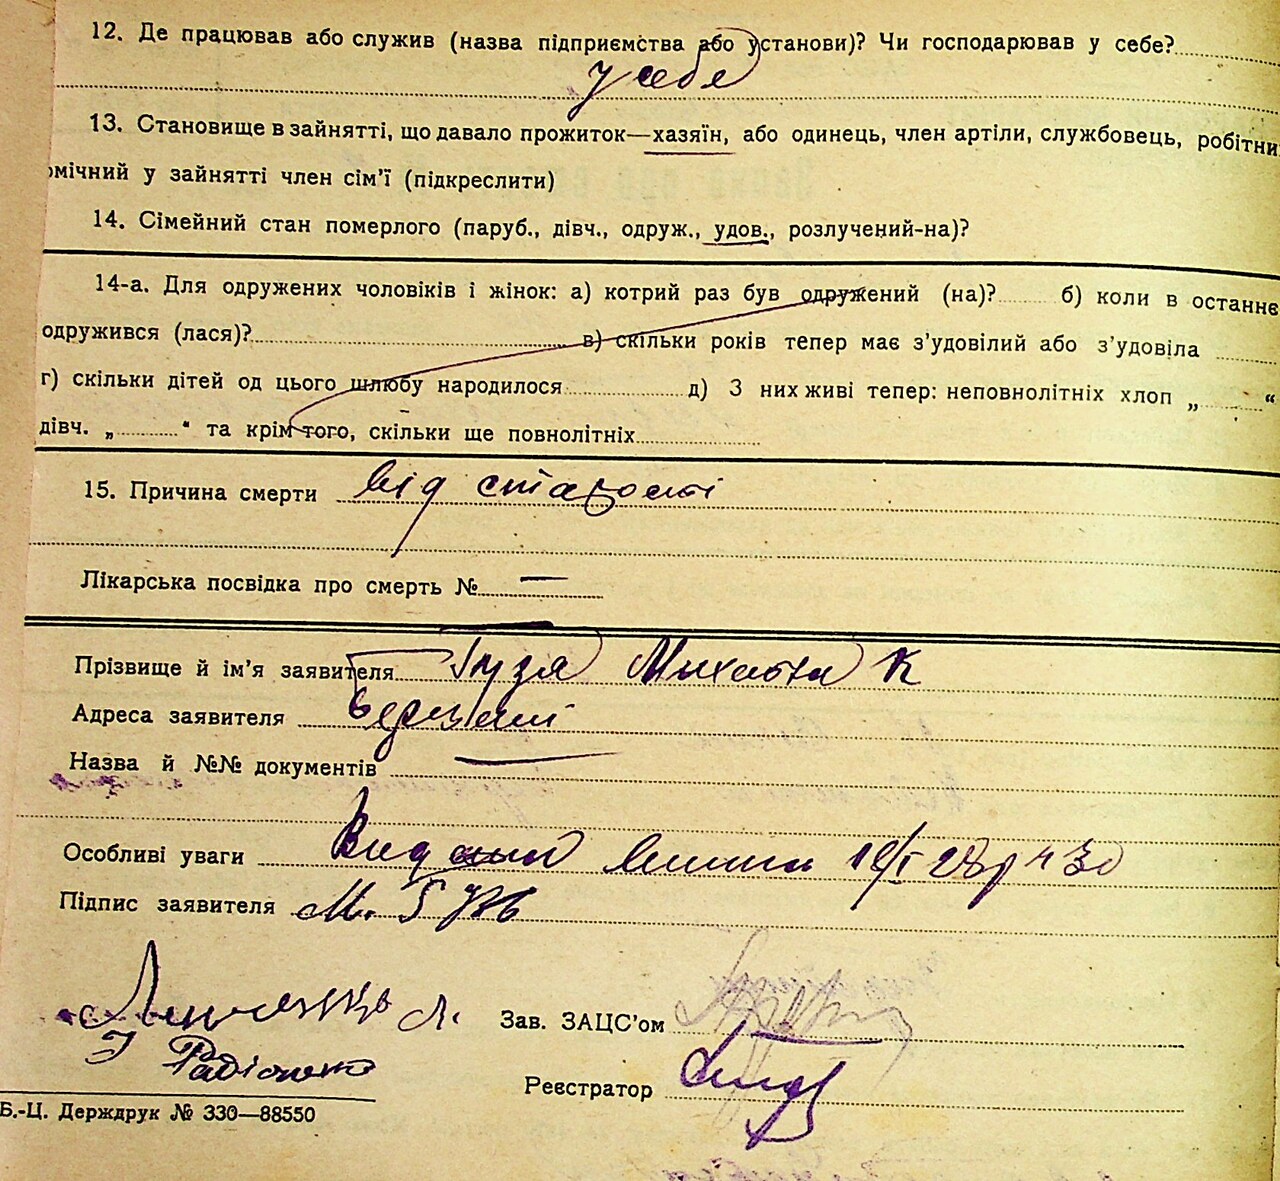 12. Де працював або служив (назва підприємства або установи)? Чи господарював у себе?
у себе
13. Становище в зайнятті, що давало прожиток—хазяїн, або одинець, член артіли, службовець, робітни
омічний у зайнятті член сім'ї (підкреслити)
14. Сімейний стан померлого (паруб., дівч., одруж., удов., розлучений-на)?
14-а. Для одружених чоловіків і жінок: а) котрий раз був одружений (на)? б) коли в останнє
одружився (лася)? в) скільки років тепер має з'удовілий або з'удовіла
г) скільки дітей од цього шлюбу народилося д) З них живі тепер: неповнолітніх хлоп „ “
дівч. „ “ та крім того, скільки ще повнолітніх
15. Причина смерти від старості
Лікарська посвідка про смерть № —
Прізвище й ім'я заявителя Гузя К
Адреса заявителя
Назва й №№ документів —
Особливі уваги
Підпис заявителя М.
Л.
Зав. ЗАЦС'ом
І Радіоненко
Реєстратор
Б.-Ц. Держдрук № 330—88550